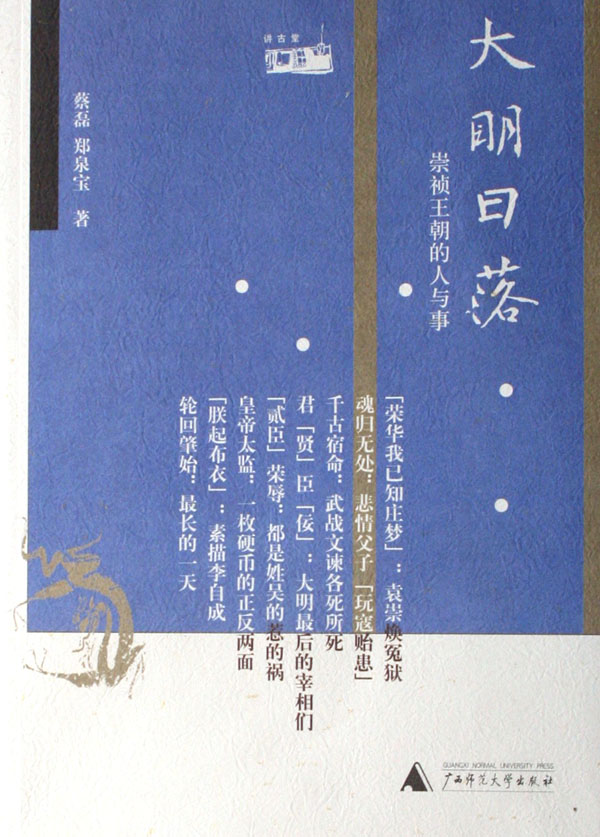 讲古堂
大明日落
崇祯王朝的人与事
蔡磊 郑泉宝 著
「荣华我已知庄梦」：袁崇焕冤狱
魂归无处：悲情父子「玩寇贻患」
千古宿命：武战文谏各死所死
君「贤」臣「佞」：大明最后的宰相们
「贰臣」荣辱：都是姓吴的惹的祸
皇帝太监：一枚硬币的正反两面
「朕起布衣」：素描李自成
轮回肇始：最长的一天
GUANGXI NORMAL UNIVERSITY PRESS
广西师范大学出版社